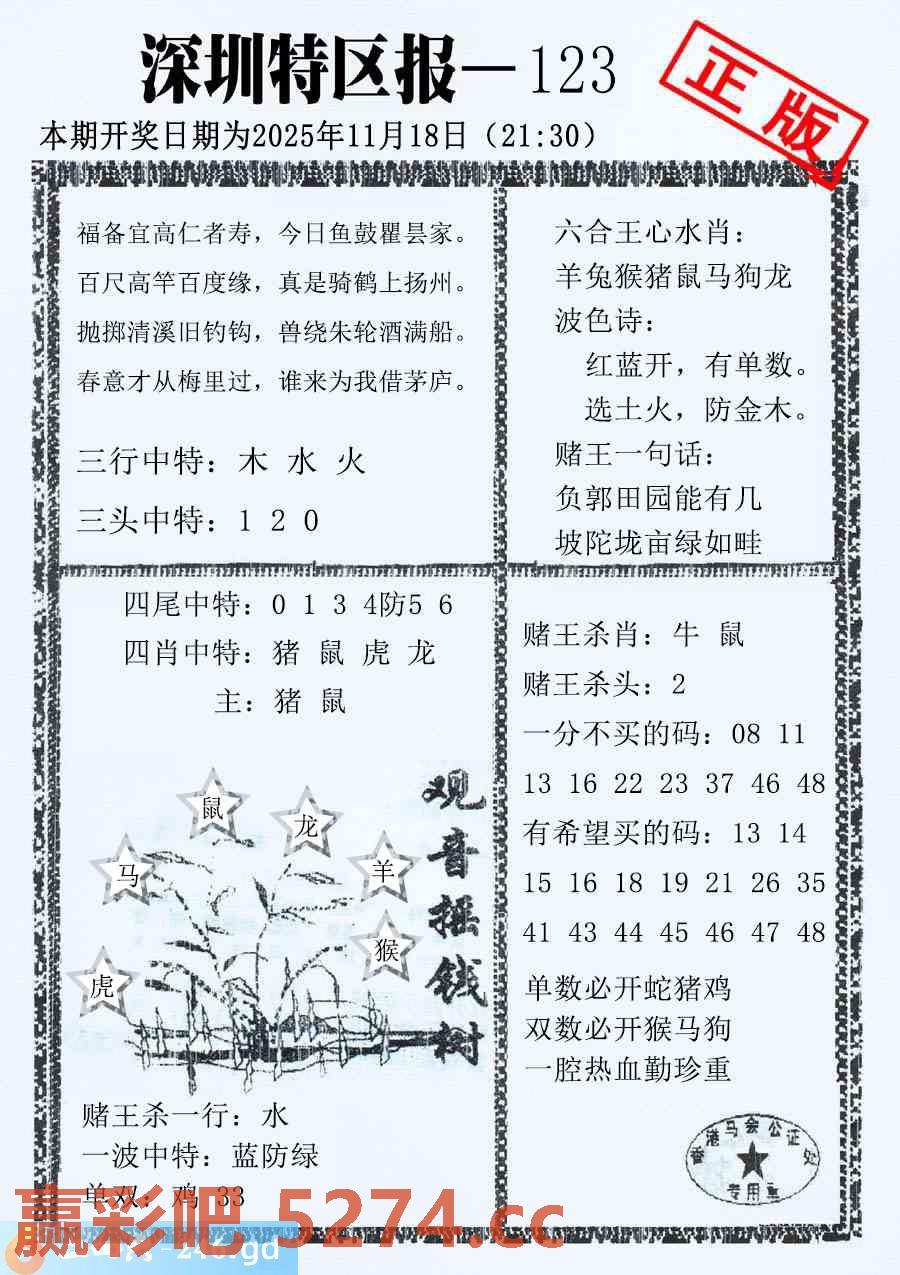 深圳特区报—123
正版
本期开奖日期为2025年11月18日（21:30）
福备宜高仁者寿，今日鱼鼓瞿昙家。
百尺高竿百度缘，真是骑鹤上扬州。
抛掷清溪旧钓钩，兽绕朱轮酒满船。
春意才从梅里过，谁来为我借茅庐。
三行中特：木 水 火
三头中特：1 2 0
六合王心水肖：
羊兔猴猪鼠马狗龙
波色诗：
红蓝开，有单数。
选土火，防金木。
赌王一句话：
负郭田园能有几
坡陀垅亩绿如畦
四尾中特：0 1 3 4防5 6
四肖中特：猪 鼠 虎 龙
主：猪 鼠
鼠
龙
马
羊
猴
虎
观音摇钱树
赌王杀一行：水
一波中特：蓝防绿
单双：鸡 33
赌王杀肖：牛 鼠
赌王杀头：2
一分不买的码：08 11
13 16 22 23 37 46 48
有希望买的码：13 14
15 16 18 19 21 26 35
41 43 44 45 46 47 48
单数必开蛇猪鸡
双数必开猴马狗
一腔热血勤珍重
香港马会公证处
专用章
赢彩吧 5274.cc